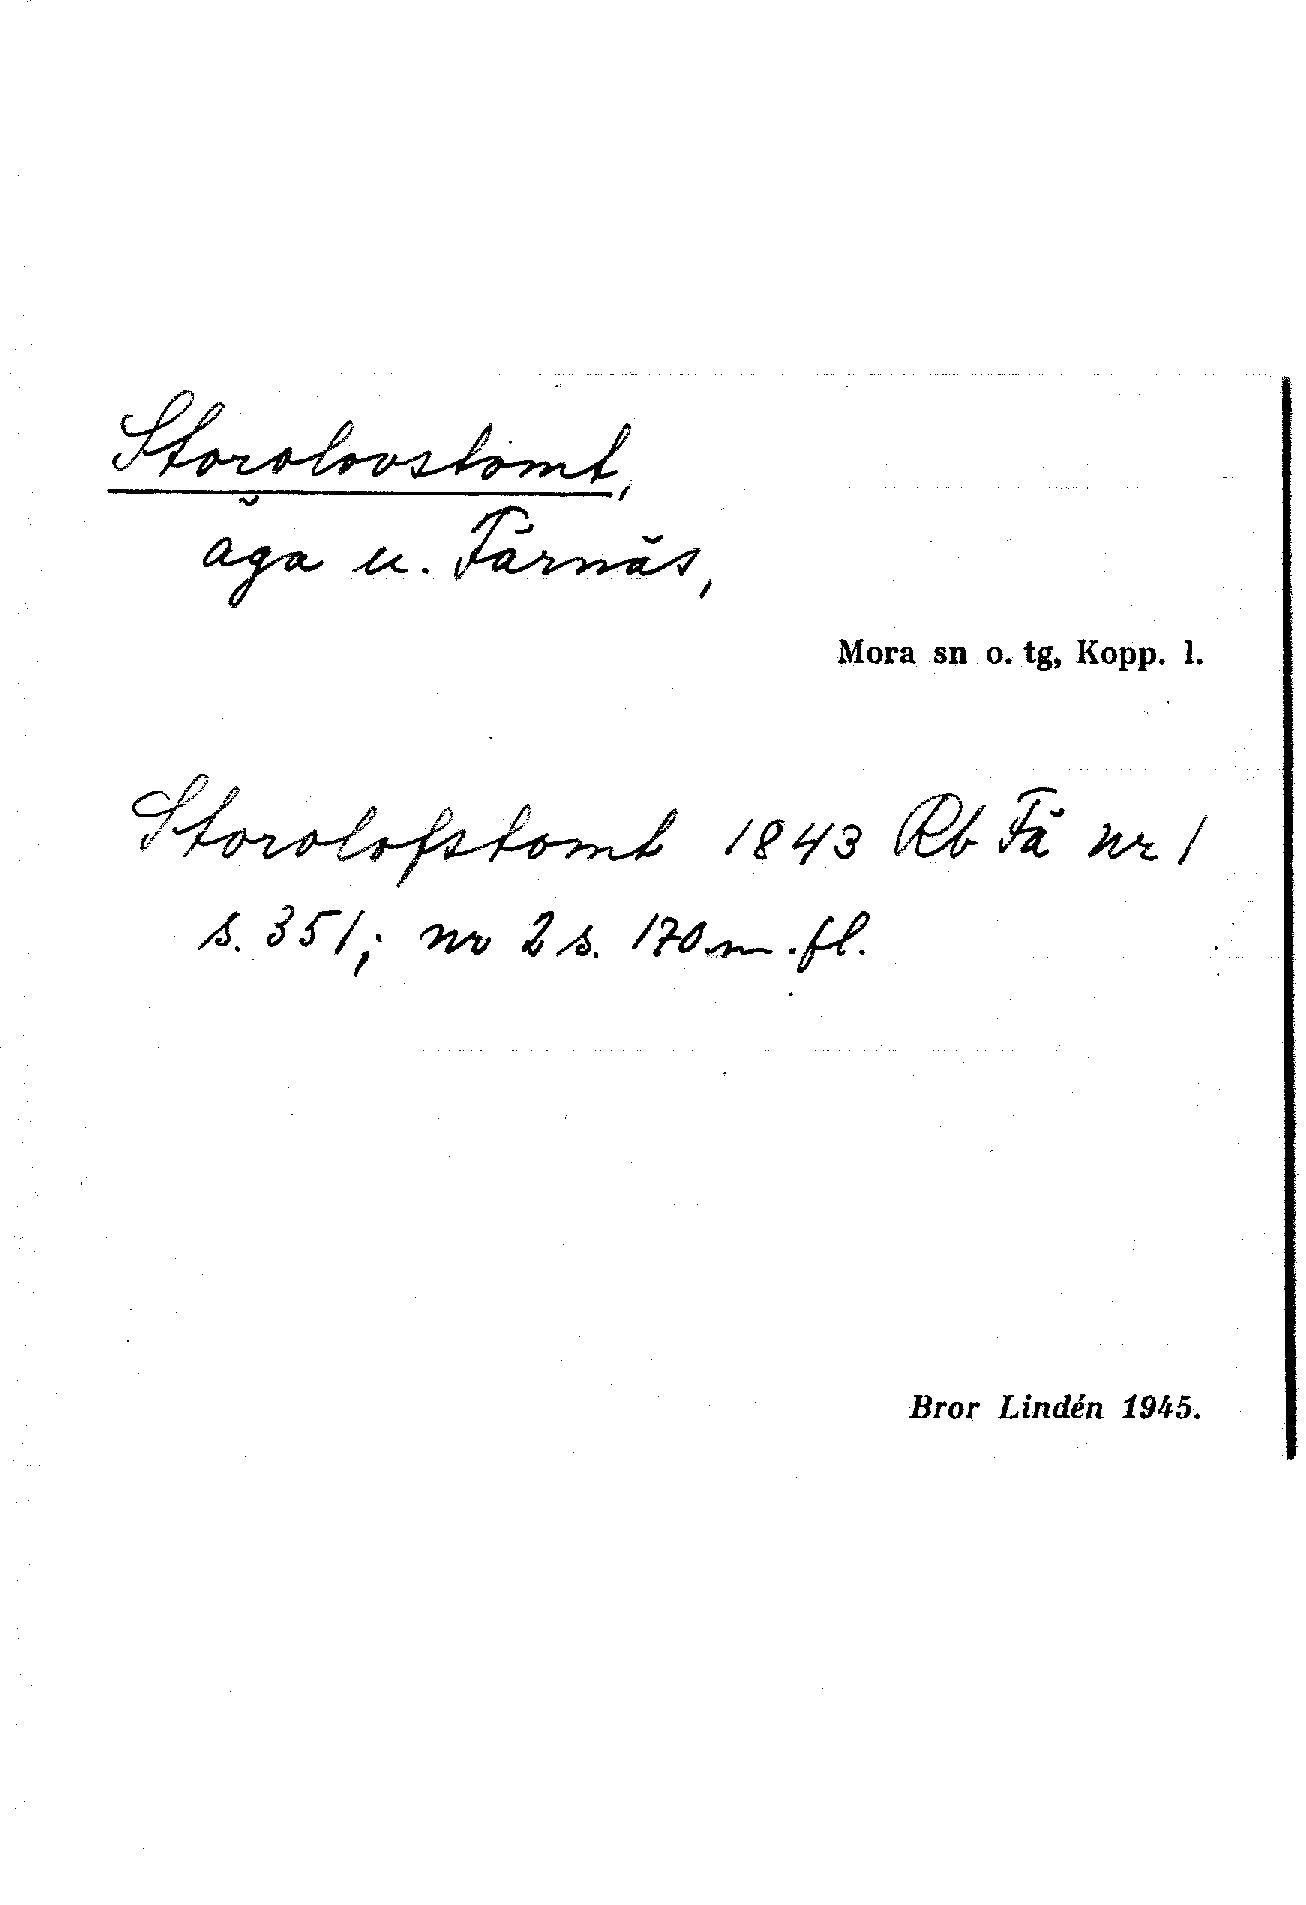 Storolovstomt,
äga u. Färnäs,
Mora sn o. tg, Kopp. l.
Storolofstomt 1843 Rb Fä nr 1
s. 351; nr 2 s. 170 m. fl.
Bror Lindén 1945.